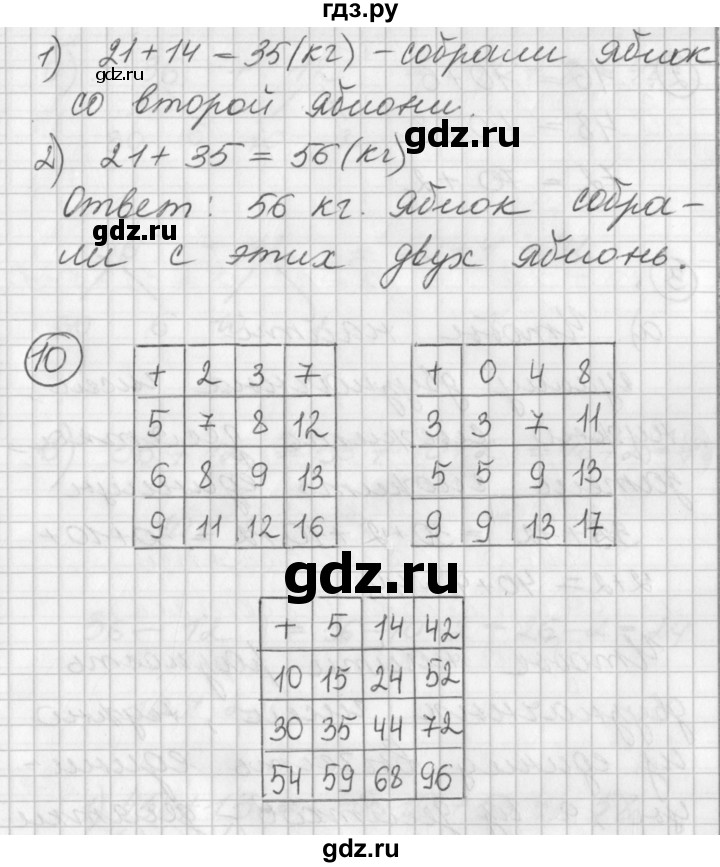 гдз.ру
1) 21 + 14 = 35 (кг) - собрали яблок
со второй яблони.
2) 21 + 35 = 56 (кг)
Ответ: 56 кг. яблок собра-
ли с этих двух яблонь.
gdz.ru
gdz.ru
gdz.ru
10
+ 2 3 7
5 7 8 12
6 8 9 13
9 11 12 16
+ 0 4 8
3 3 7 11
5 5 9 13
9 9 13 17
gdz.ru
+ 5 14 42
10 15 24 52
30 35 44 72
54 59 68 96
gdz.ru